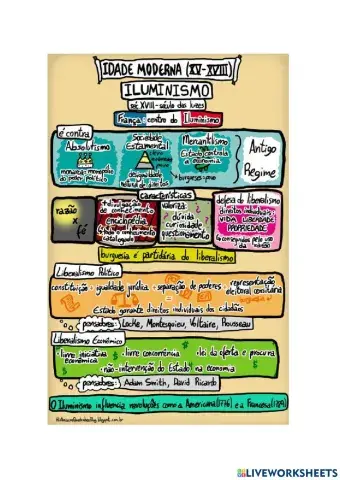 IDADE MODERNA (XV-XVIII)
ILUMINISMO
séc XVIII - século das luzes
França: centro do Iluminismo
é contra
Absolutismo
monarca: monopólio
do poder político
Sociedade
Estamental
desigualdade
natural de direitos
Mercantilismo
Estado controla
a economia
burgueses:
Antigo
Regime
características
razão
x
fé
divulgação
de conhecimento
enciclopédia
todo o conhecimento
catalogado
valoriza
dúvida
curiosidade
questionamento
defesa do liberalismo
direitos individuais
VIDA LIBERDADE
PROPRIEDADE
compreendidos pelo uso
da razão
burguesia é partidária do liberalismo
Liberalismo Político
constituição · igualdade jurídica · separação de poderes · representação
eleitoral
Estado garante direitos individuais dos cidadãos
pensadores: Locke, Montesquieu, Voltaire, Rousseau
Liberalismo Econômico
· livre iniciativa
econômica
· livre concorrência
· lei da oferta e procura
· não-intervenção do Estado na economia
pensadores: Adam Smith, David Ricardo
O Iluminismo influencia revoluções como a Americana (1776) e a Francesa (1789)
LIVEWORKSHEETS